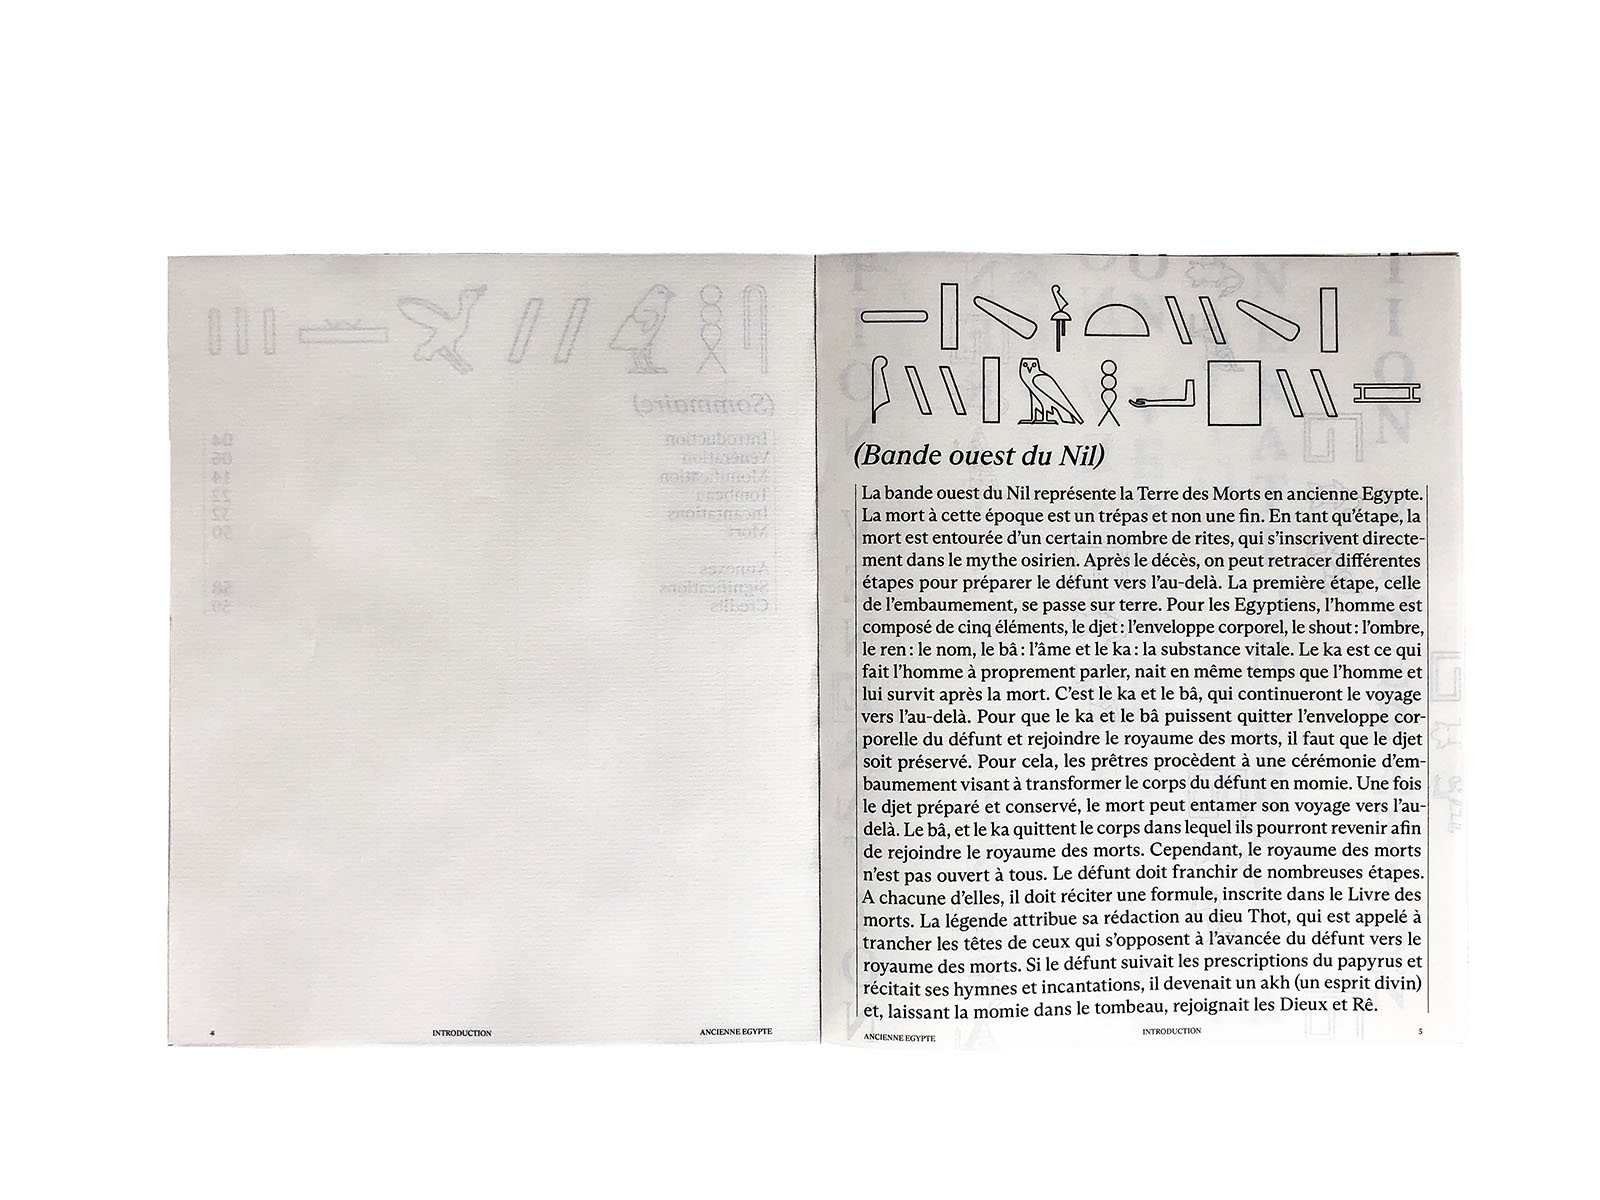 (Sommaire)
Introduction 04
Vénération 06
Momification 14
Tombeau 22
Incantations 32
Mort 50
Annexes
Significations 58
Crédits 59
4 INTRODUCTION ANCIENNE EGYPTE
(Bande ouest du Nil)
La bande ouest du Nil représente la Terre des Morts en ancienne Egypte.
La mort à cette époque est un trépas et non une fin. En tant qu’étape, la
mort est entourée d’un certain nombre de rites, qui s’inscrivent directe-
ment dans le mythe osirien. Après le décès, on peut retracer différentes
étapes pour préparer le défunt vers l’au-delà. La première étape, celle
de l’embaumement, se passe sur terre. Pour les Egyptiens, l’homme est
composé de cinq éléments, le djet : l’enveloppe corporel, le shout : l’ombre,
le ren : le nom, le bâ : l’âme et le ka : la substance vitale. Le ka est ce qui
fait l’homme à proprement parler, nait en même temps que l’homme et
lui survit après la mort. C’est le ka et le bâ, qui continueront le voyage
vers l’au-delà. Pour que le ka et le bâ puissent quitter l’enveloppe cor-
porelle du défunt et rejoindre le royaume des morts, il faut que le djet
soit préservé. Pour cela, les prêtres procèdent à une cérémonie d’em-
baumement visant à transformer le corps du défunt en momie. Une fois
le djet préparé et conservé, le mort peut entamer son voyage vers l’au-
delà. Le bâ, et le ka quittent le corps dans lequel ils pourront revenir afin
de rejoindre le royaume des morts. Cependant, le royaume des morts
n’est pas ouvert à tous. Le défunt doit franchir de nombreuses étapes.
A chacune d’elles, il doit réciter une formule, inscrite dans le Livre des
morts. La légende attribue sa rédaction au dieu Thot, qui est appelé à
trancher les têtes de ceux qui s’opposent à l’avancée du défunt vers le
royaume des morts. Si le défunt suivait les prescriptions du papyrus et
récitait ses hymnes et incantations, il devenait un akh (un esprit divin)
et, laissant la momie dans le tombeau, rejoignait les Dieux et Rê.
ANCIENNE EGYPTE INTRODUCTION 5